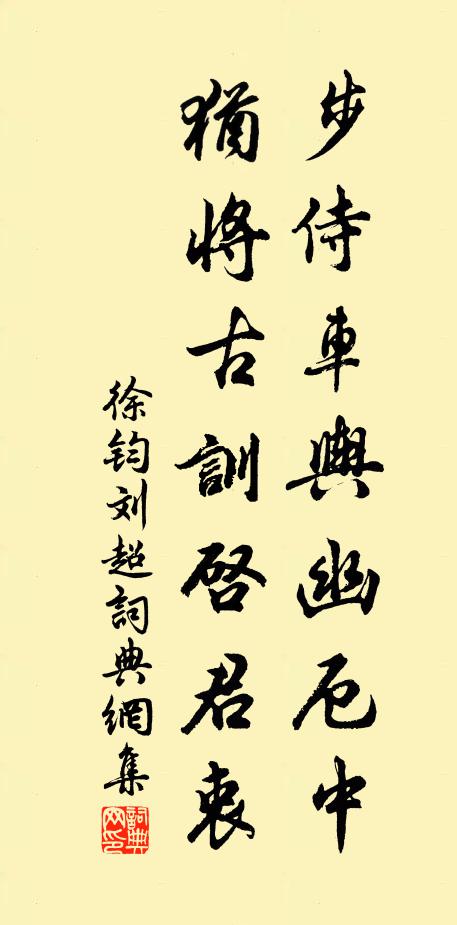 步侍車輿幽厄中
猶將古訓啓君衷
徐鈞刘超詞典網集
詞典网印